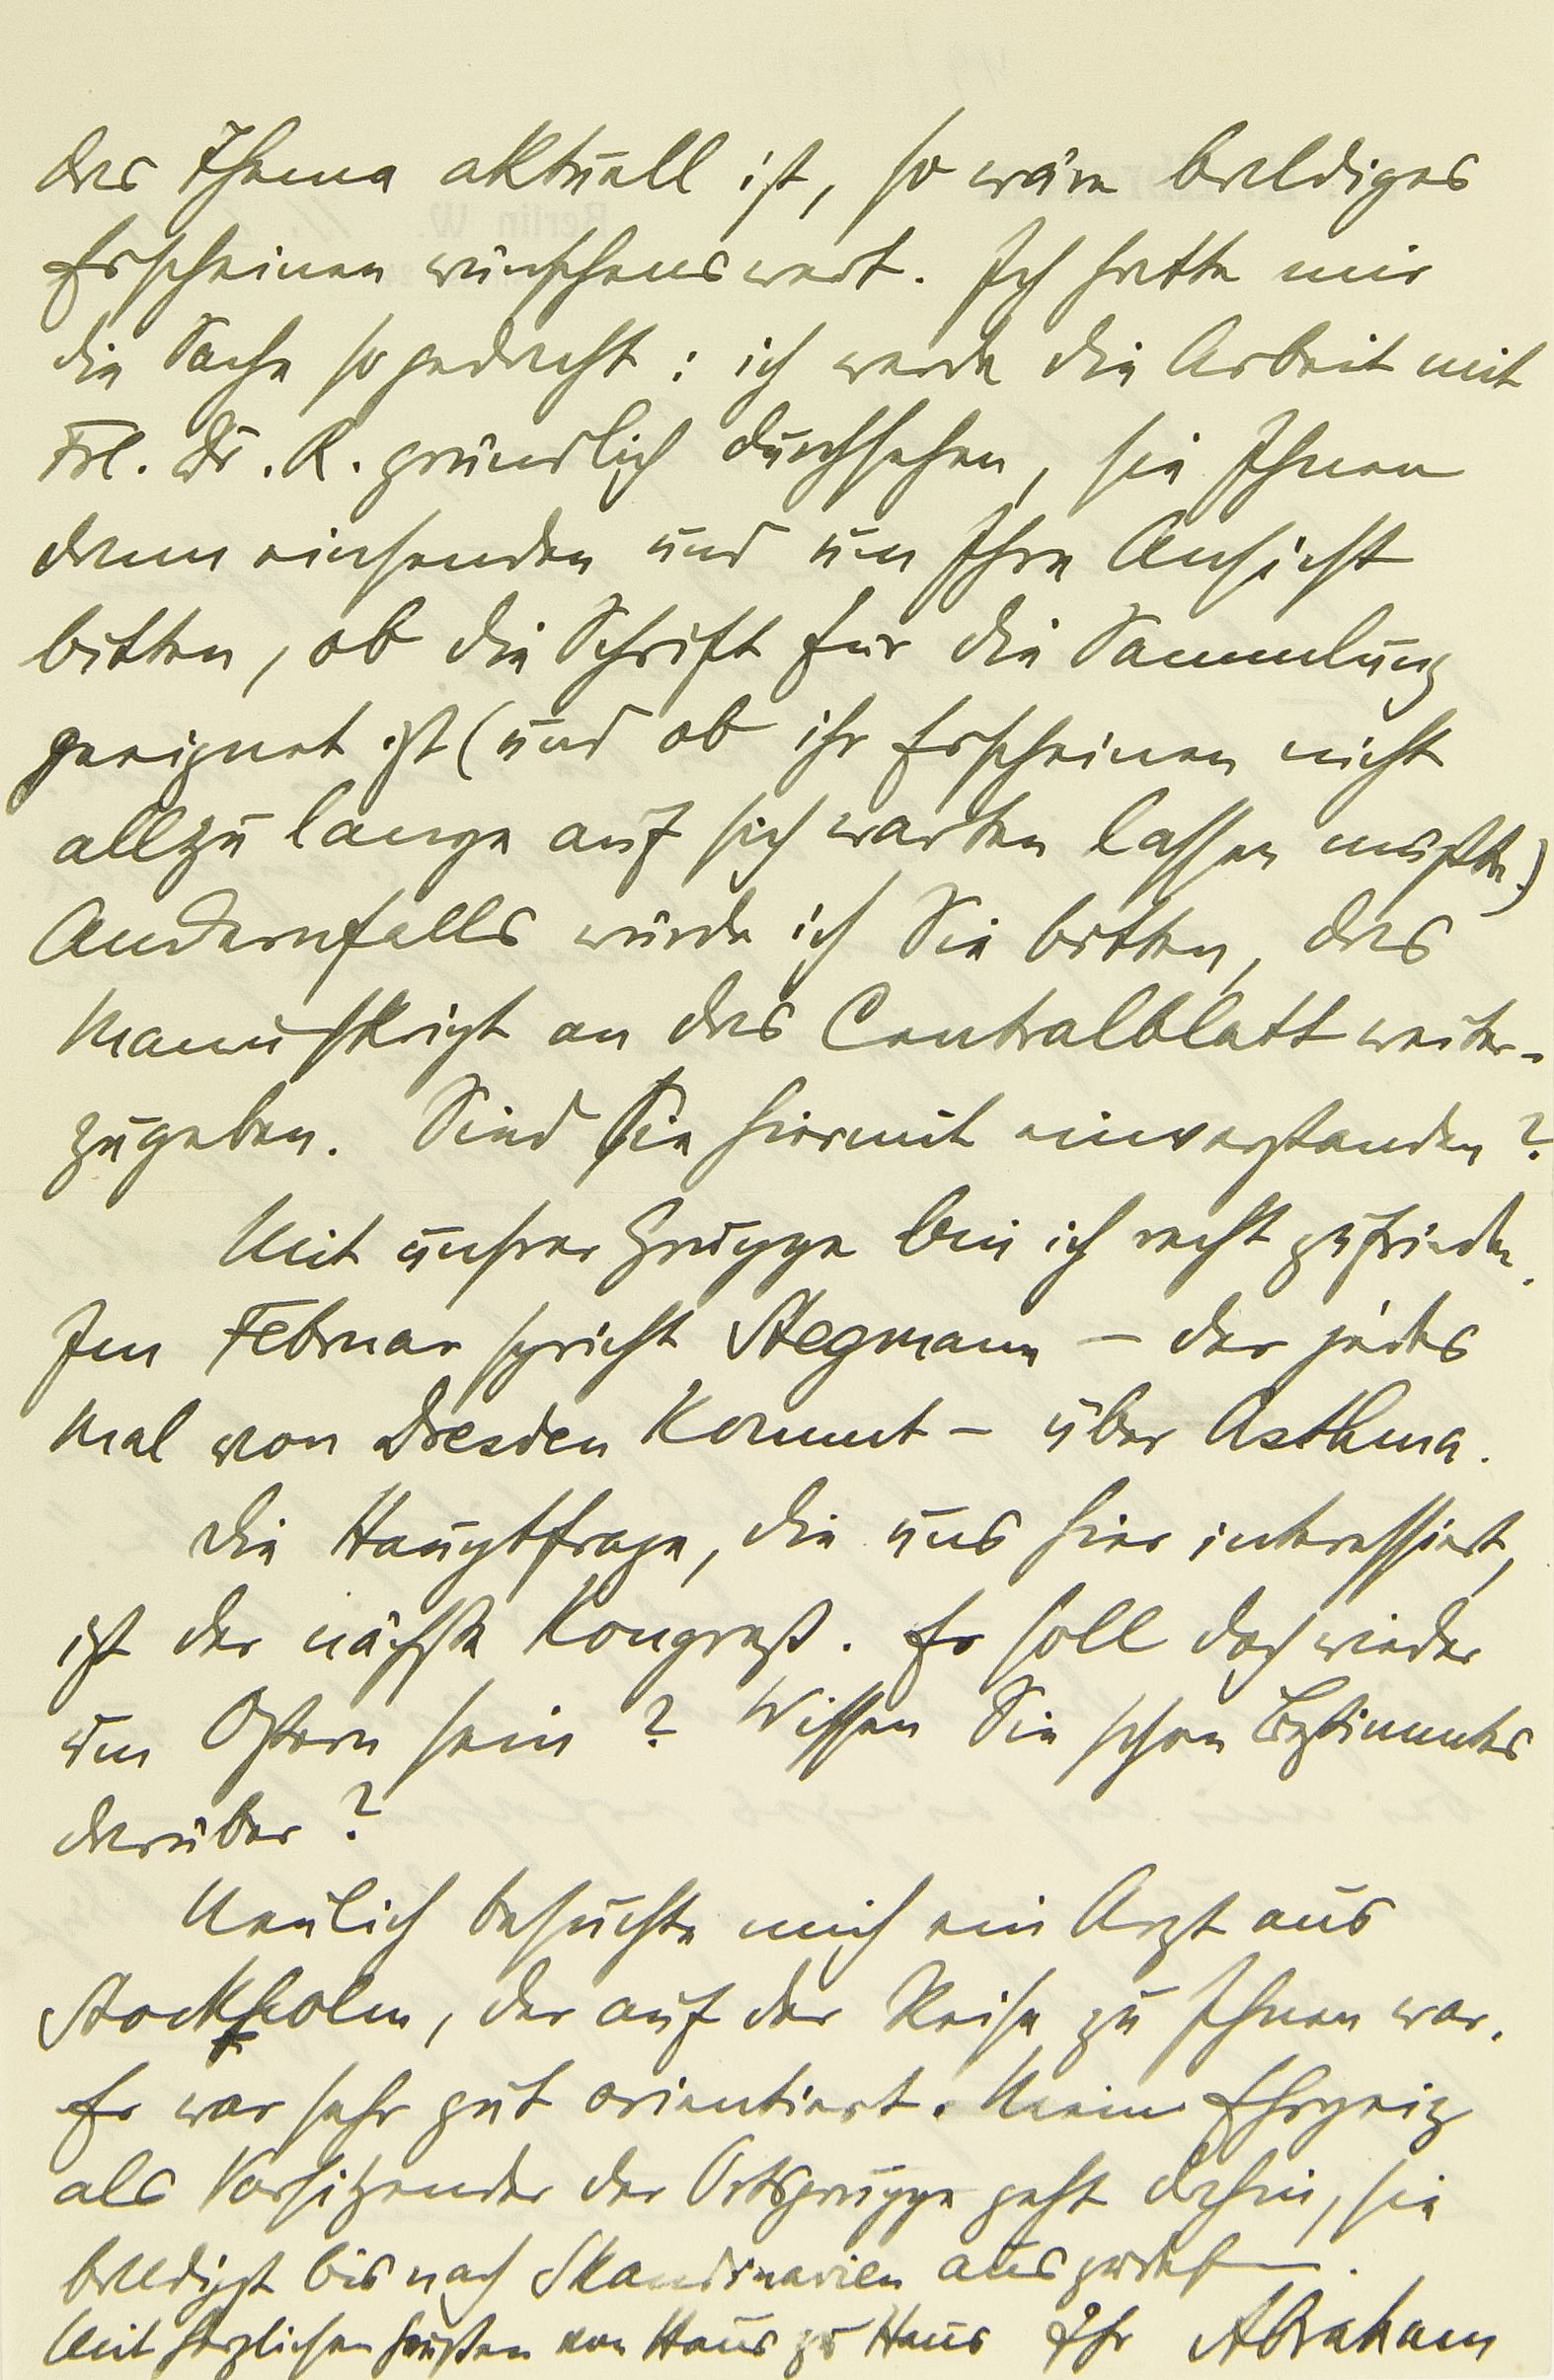 das Thema aktuell ist, so wäre baldiges
Erscheinen wünschenswert. Ich hatte mir
die Sache so gedacht: ich werde die Arbeit mit
Frl. Dr. R. gründlich durchsehen, sie Ihnen
dann einsenden und um Ihre Ansicht
bitten, ob die Schrift für die Sammlung
geeignet ist (und ob ihr Erscheinen nicht
allzu lange auf sich warten lassen müßte.)
Andernfalls würde ich Sie bitten, das
Manuskript an das Centralblatt weiter-
zugeben. Sind Sie hiermit einverstanden?
Mit unsrer Gruppe bin ich recht zufrieden.
Im Februar spricht Stegmann – der jedes
Mal von Dresden kommt – über Asthma.
Die Hauptfrage, die uns hier interessiert,
ist der nächste Kongreß. Er soll doch wieder
um Ostern sein? Wissen Sie schon Bestimmtes
darüber?
Neulich besuchte mich ein Arzt aus
Stockholm, der auf der Reise zu Ihnen war.
Er war sehr gut orientiert. Mein Ehrgeiz
als Vorsitzender der Ortsgruppe geht dahin, sie
baldigst bis nach Skandinavien auszudehnen.
Mit herzlichen Grüßen von Haus zu Haus Ihr Abraham